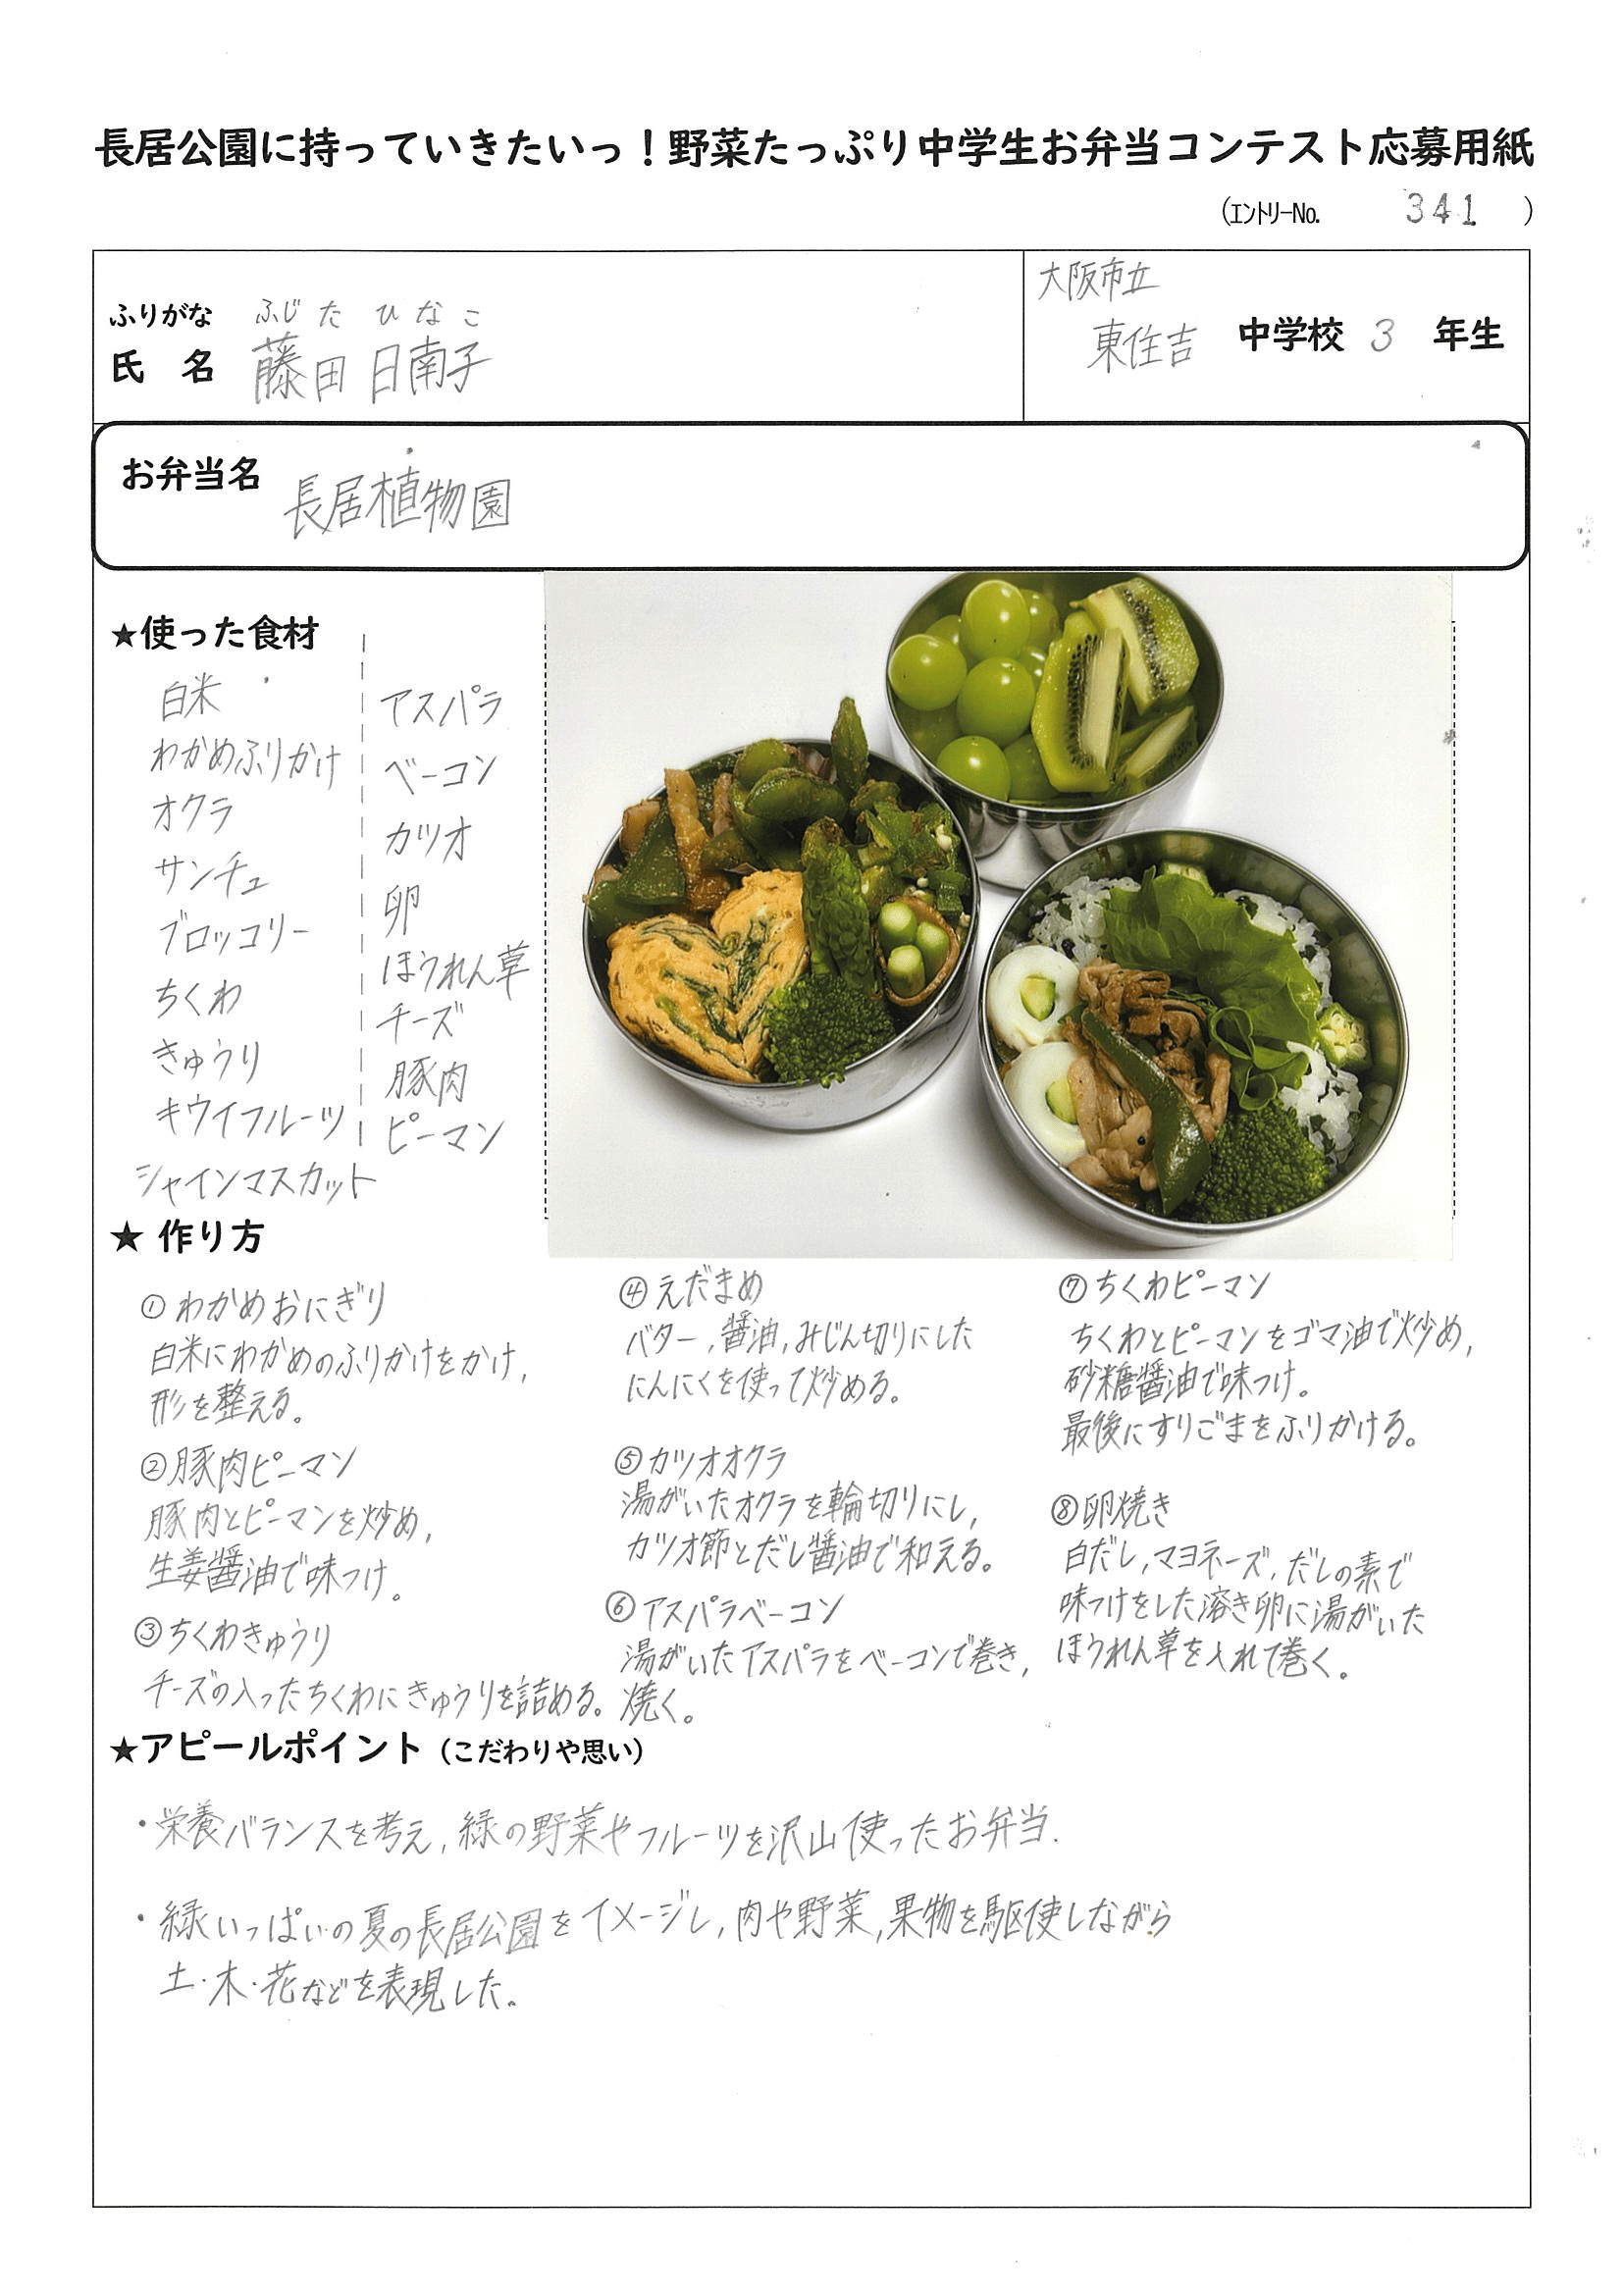 長居公園に持っていきたいっ！野菜たっぷり中学生お弁当コンテスト応募用紙
（エントリーNo. 341 ）
ふりがな ふじた ひなこ
氏 名 藤田 日南子
大阪市立
東住吉 中学校 3 年生
お弁当名 長居植物園
★使った食材
白米
わかめふりかけ
オクラ
サンチュ
ブロッコリー
ちくわ
きゅうり
キウイフルーツ
シャインマスカット
アスパラ
ベーコン
カツオ
卵
ほうれん草
チーズ
豚肉
ピーマン
★ 作り方
①わかめおにぎり
白米にわかめのふりかけをかけ,
形を整える。
②豚肉ピーマン
豚肉とピーマンを炒め,
生姜醤油で味つけ。
③ちくわきゅうり
チーズの入ったちくわにきゅうりを詰める。
④えだまめ
バター,醤油,みじん切りにした
にんにくを使って炒める。
⑤カツオオクラ
湯がいたオクラを輪切りにし,
カツオ節とだし醤油で和える。
⑥アスパラベーコン
湯がいたアスパラをベーコンで巻き,
焼く。
⑦ちくわピーマン
ちくわとピーマンをゴマ油で炒め,
砂糖醤油で味つけ。
最後にすりごまをふりかける。
⑧卵焼き
白だし,マヨネーズ,だしの素で
味つけをした溶き卵に湯がいた
ほうれん草を入れて巻く。
★アピールポイント（こだわりや思い）
・栄養バランスを考え,緑の野菜やフルーツを沢山使ったお弁当.
・緑いっぱいの夏の長居公園をイメージし,肉や野菜,果物を駆使しながら
土・木・花などを表現した。